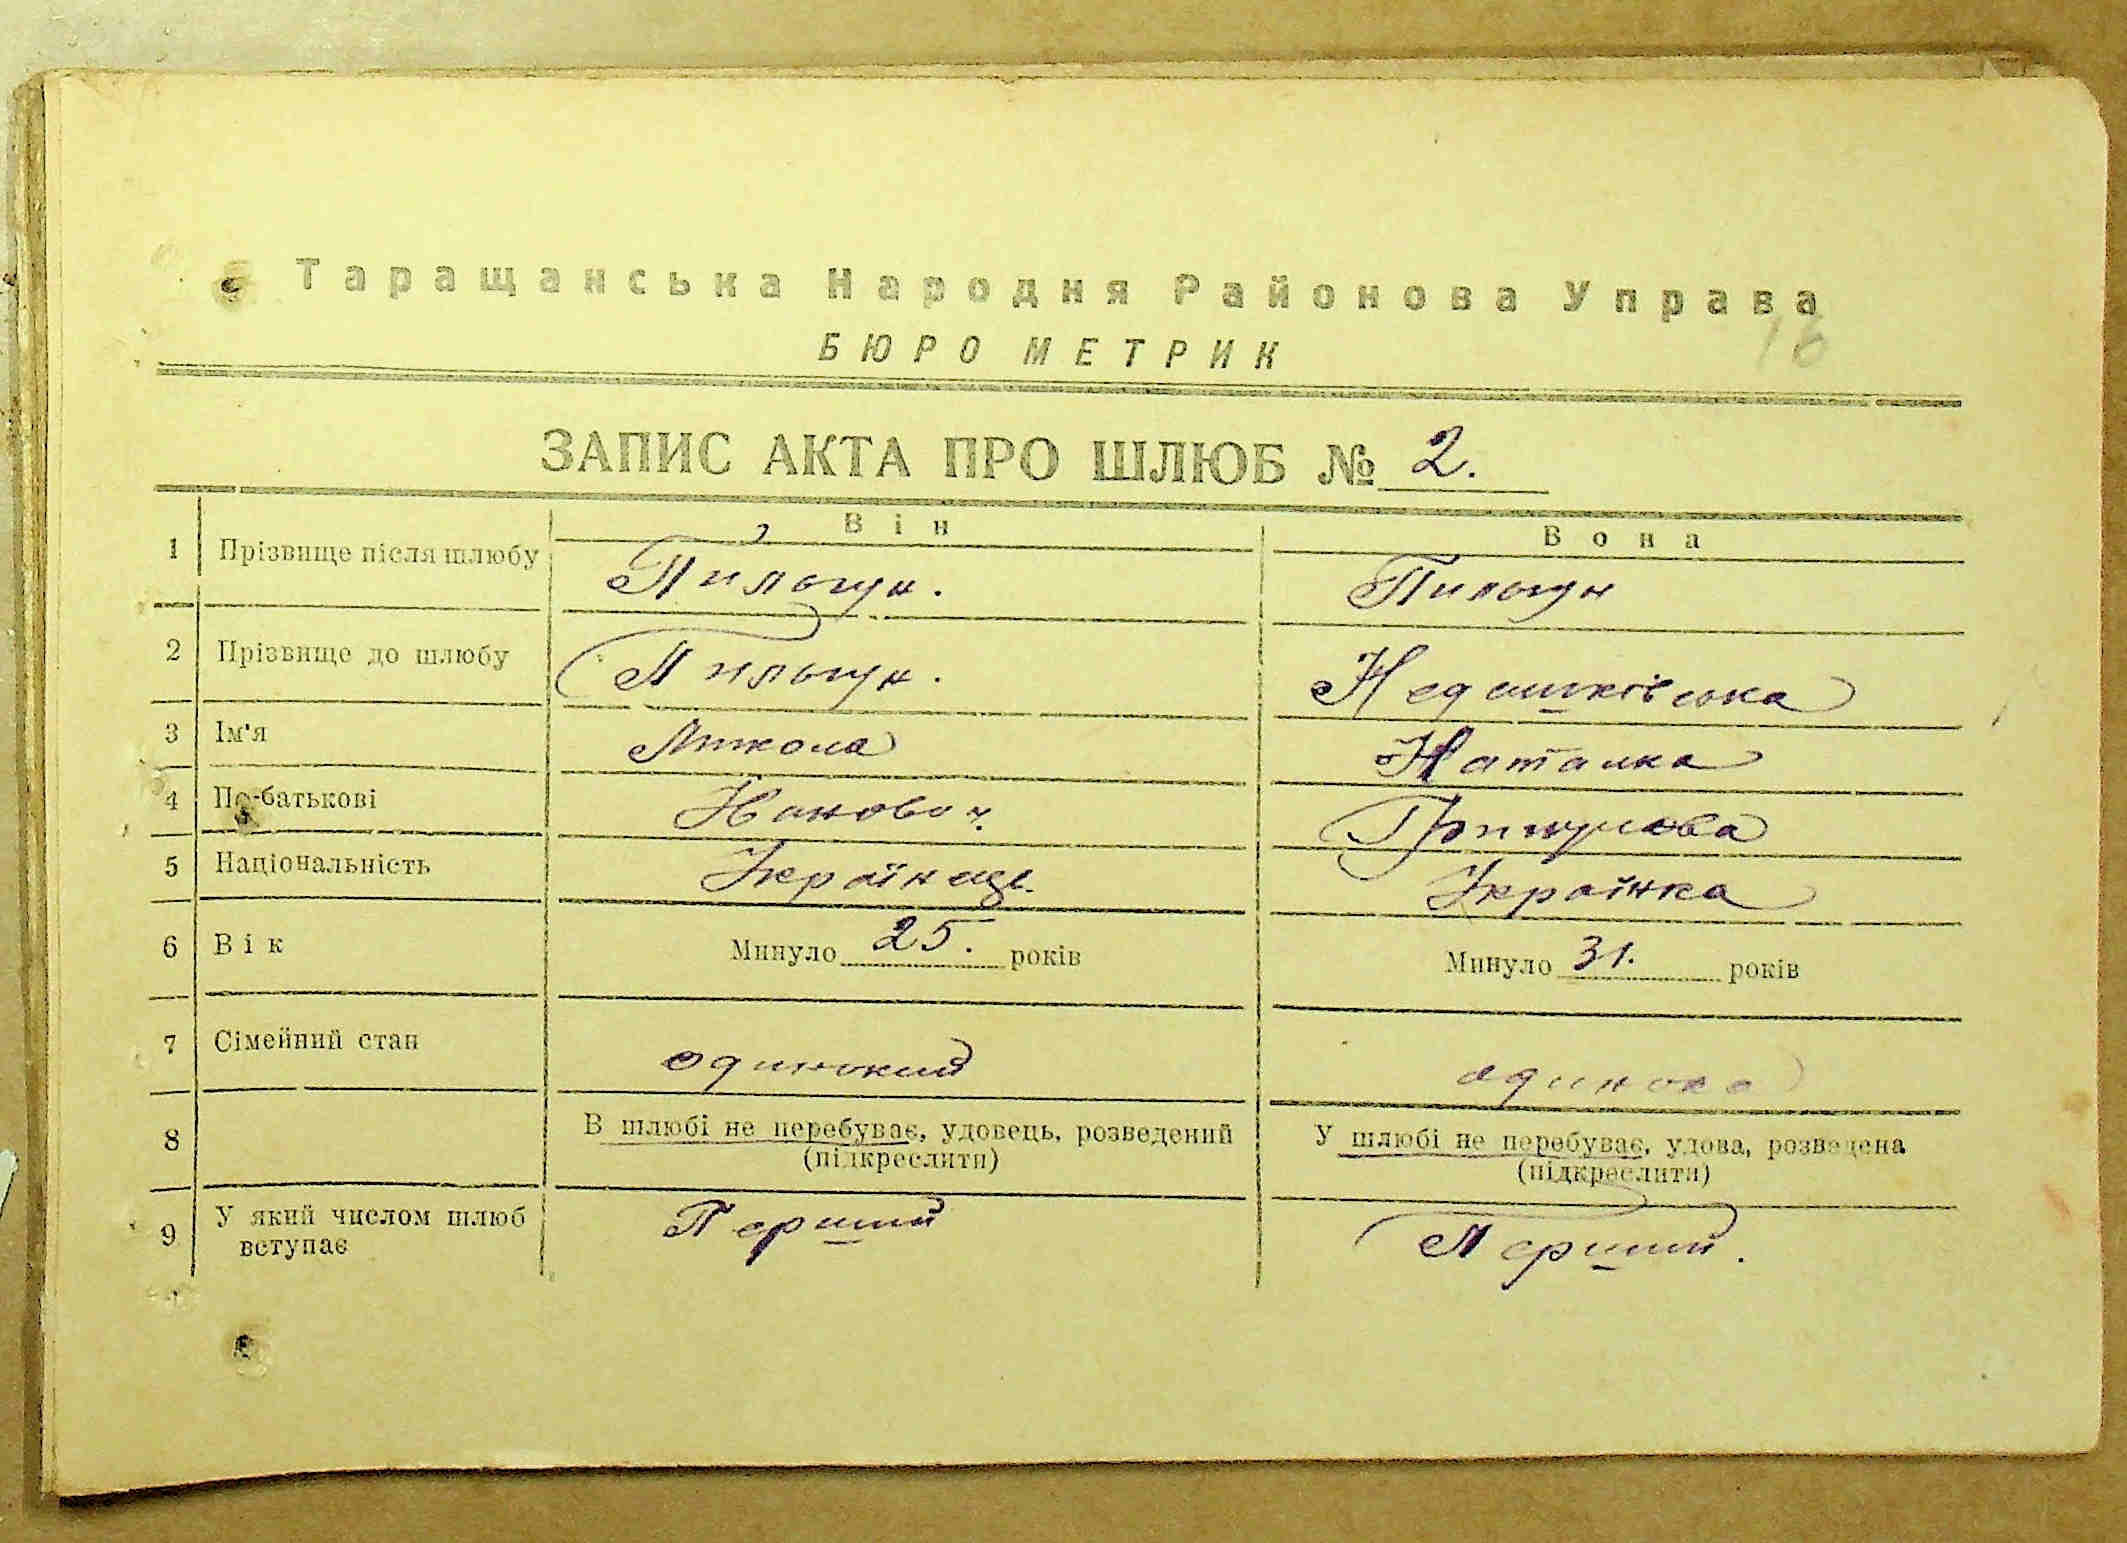 Таращанська Народня Районова Управа
16
БЮРО МЕТРИК
ЗАПИС АКТА ПРО ШЛЮБ № 2.
Він Вона
1 Прізвище після шлюбу Пильгун. Пильгун
2 Прізвище до шлюбу Пильгун. Недашківська
3 Ім'я Микола Наталка
4 По-батькові Українець
5 Національність Українець. Українка
6 Вік Минуло 25. років Минуло 31. років
7 Сімейний стан одинокий одинока
8 В шлюбі не перебуває, удовець, розведений У шлюбі не перебуває, удова, розведена
(підкреслити) (підкреслити)
9 У який числом шлюб Перший Перший.
вступає